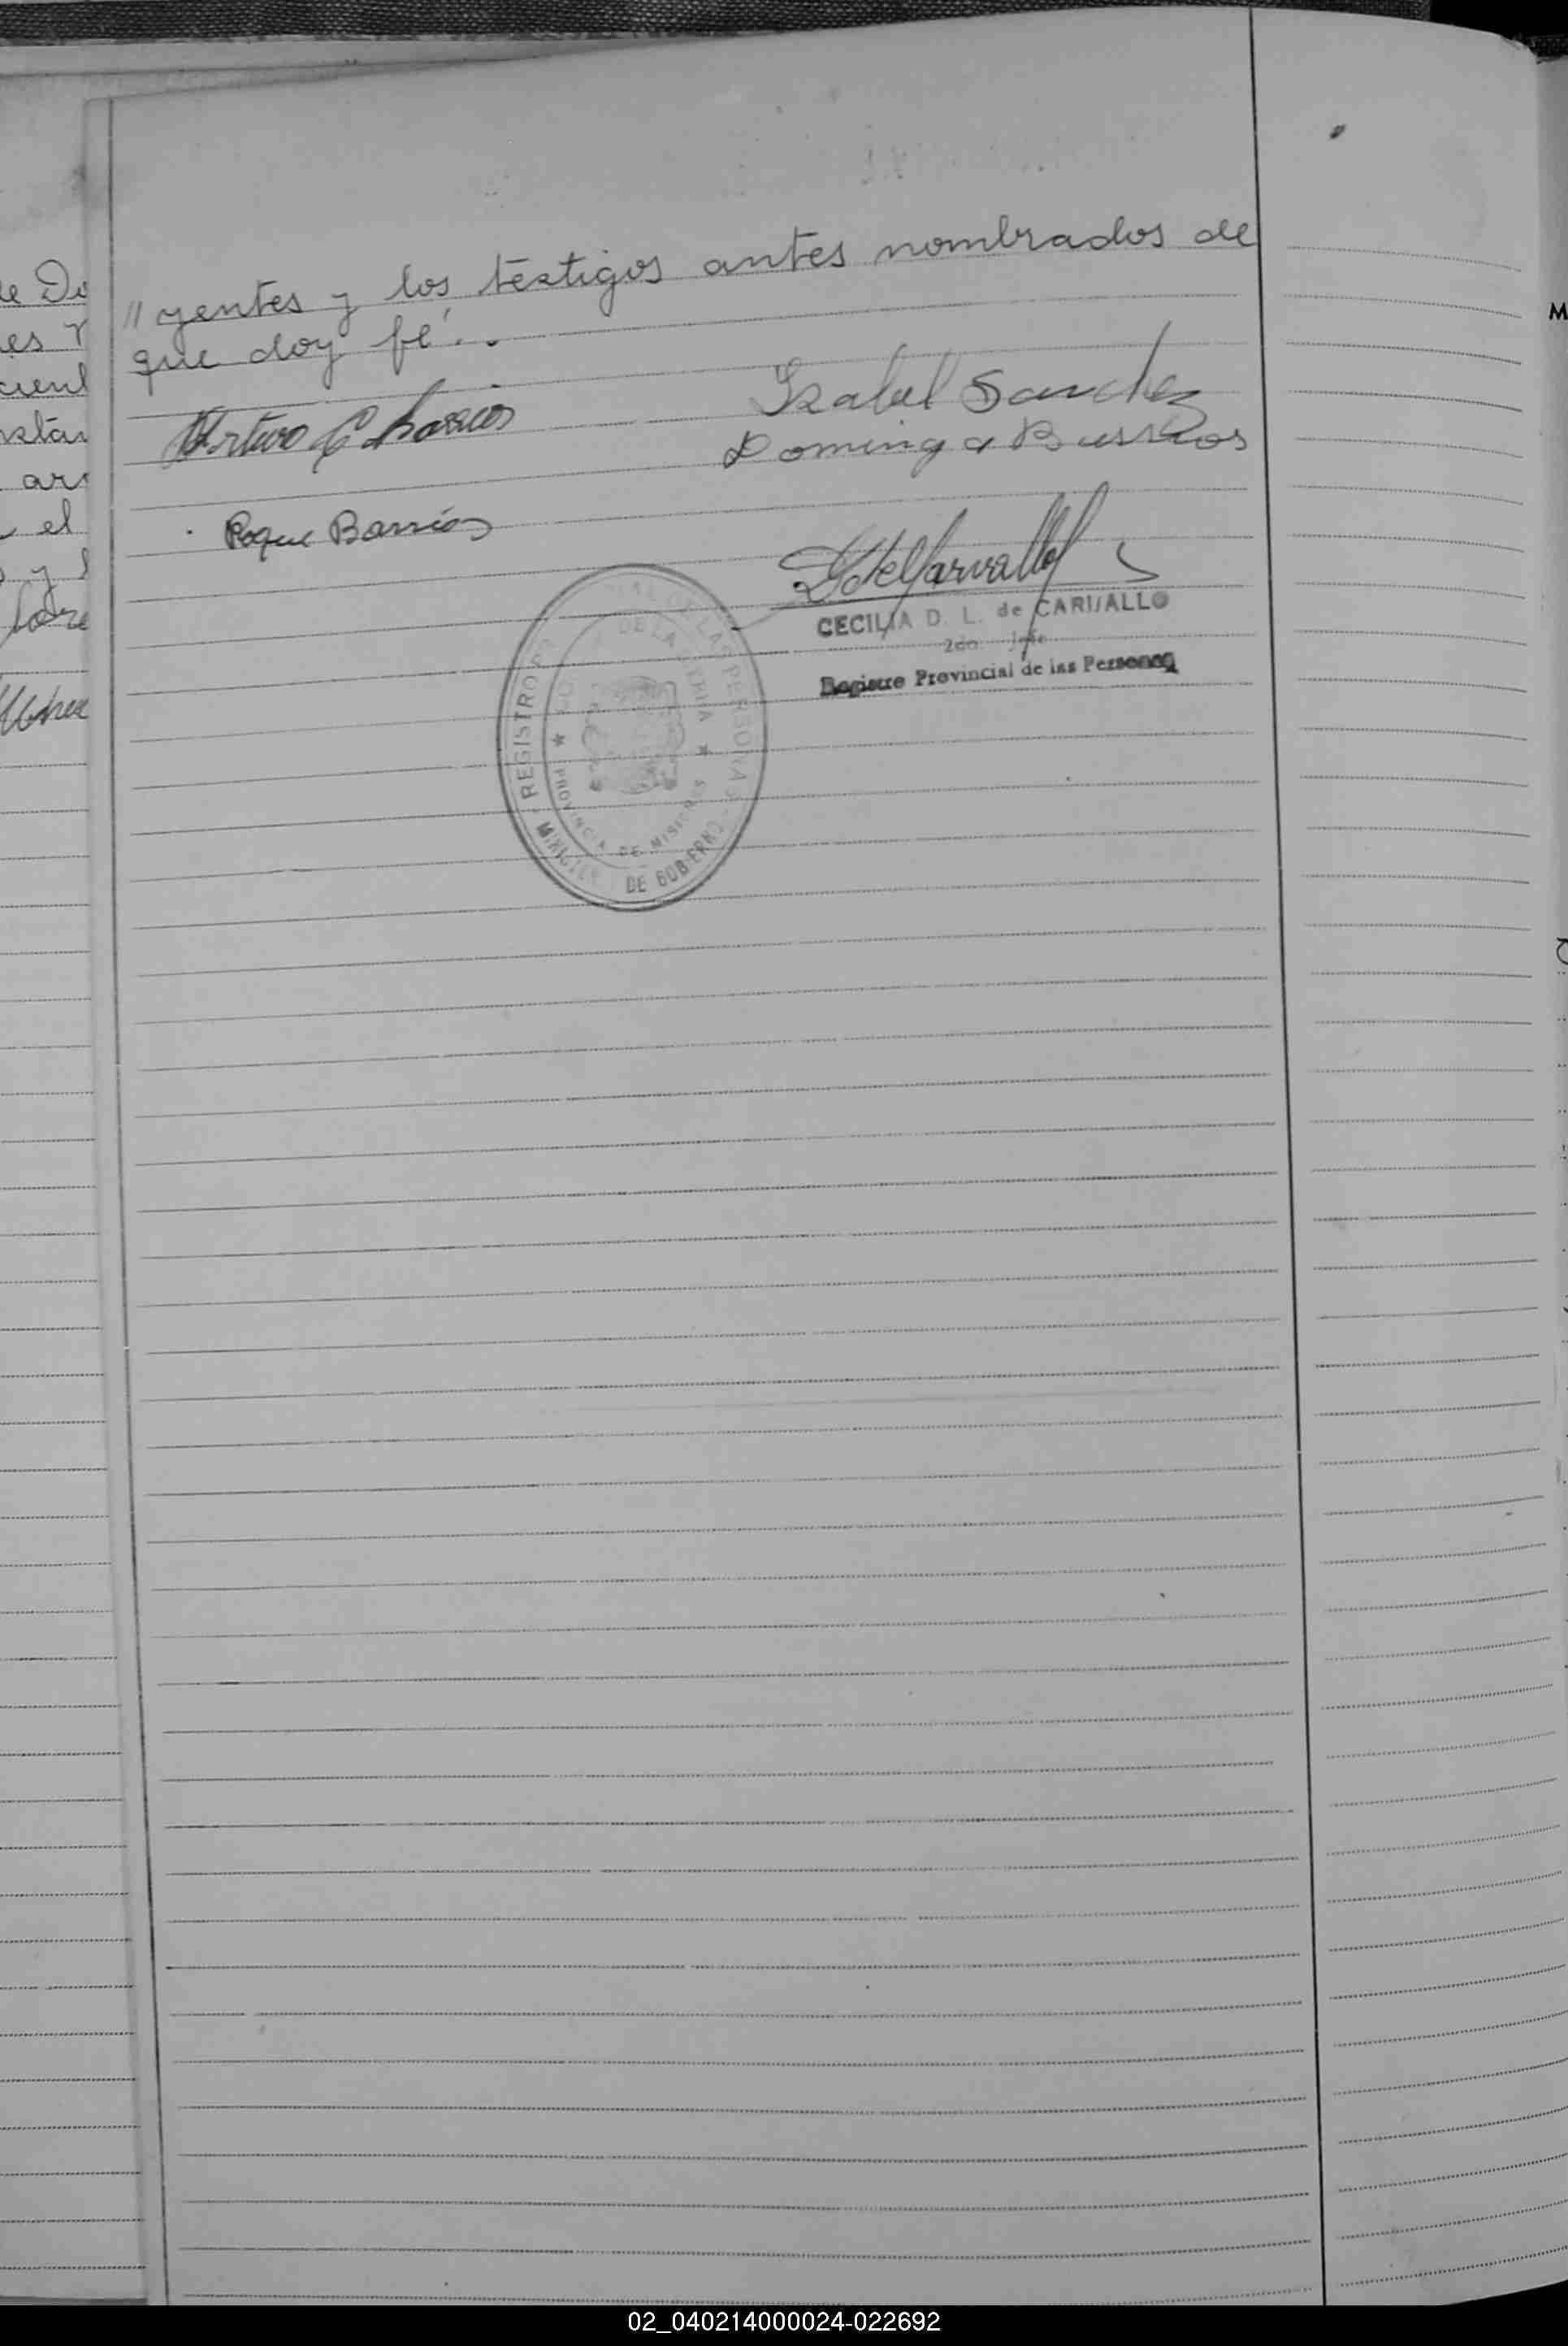 // yentes y los testigos antes nombrados de
que doy fé..
Arturo C Barrios
Isabel Sanchez
Dominga Barrios
Roque Barrios
CECILIA D. L. de CARVALLO
2do Jefe
Registro Provincial de las Personas
REGISTRO DE LAS PERSONAS
DE LA
PROVINCIA DE MISIONES
MINISTERIO DE GOBIERNO
de
es
el
y
M
02_040214000024-022692